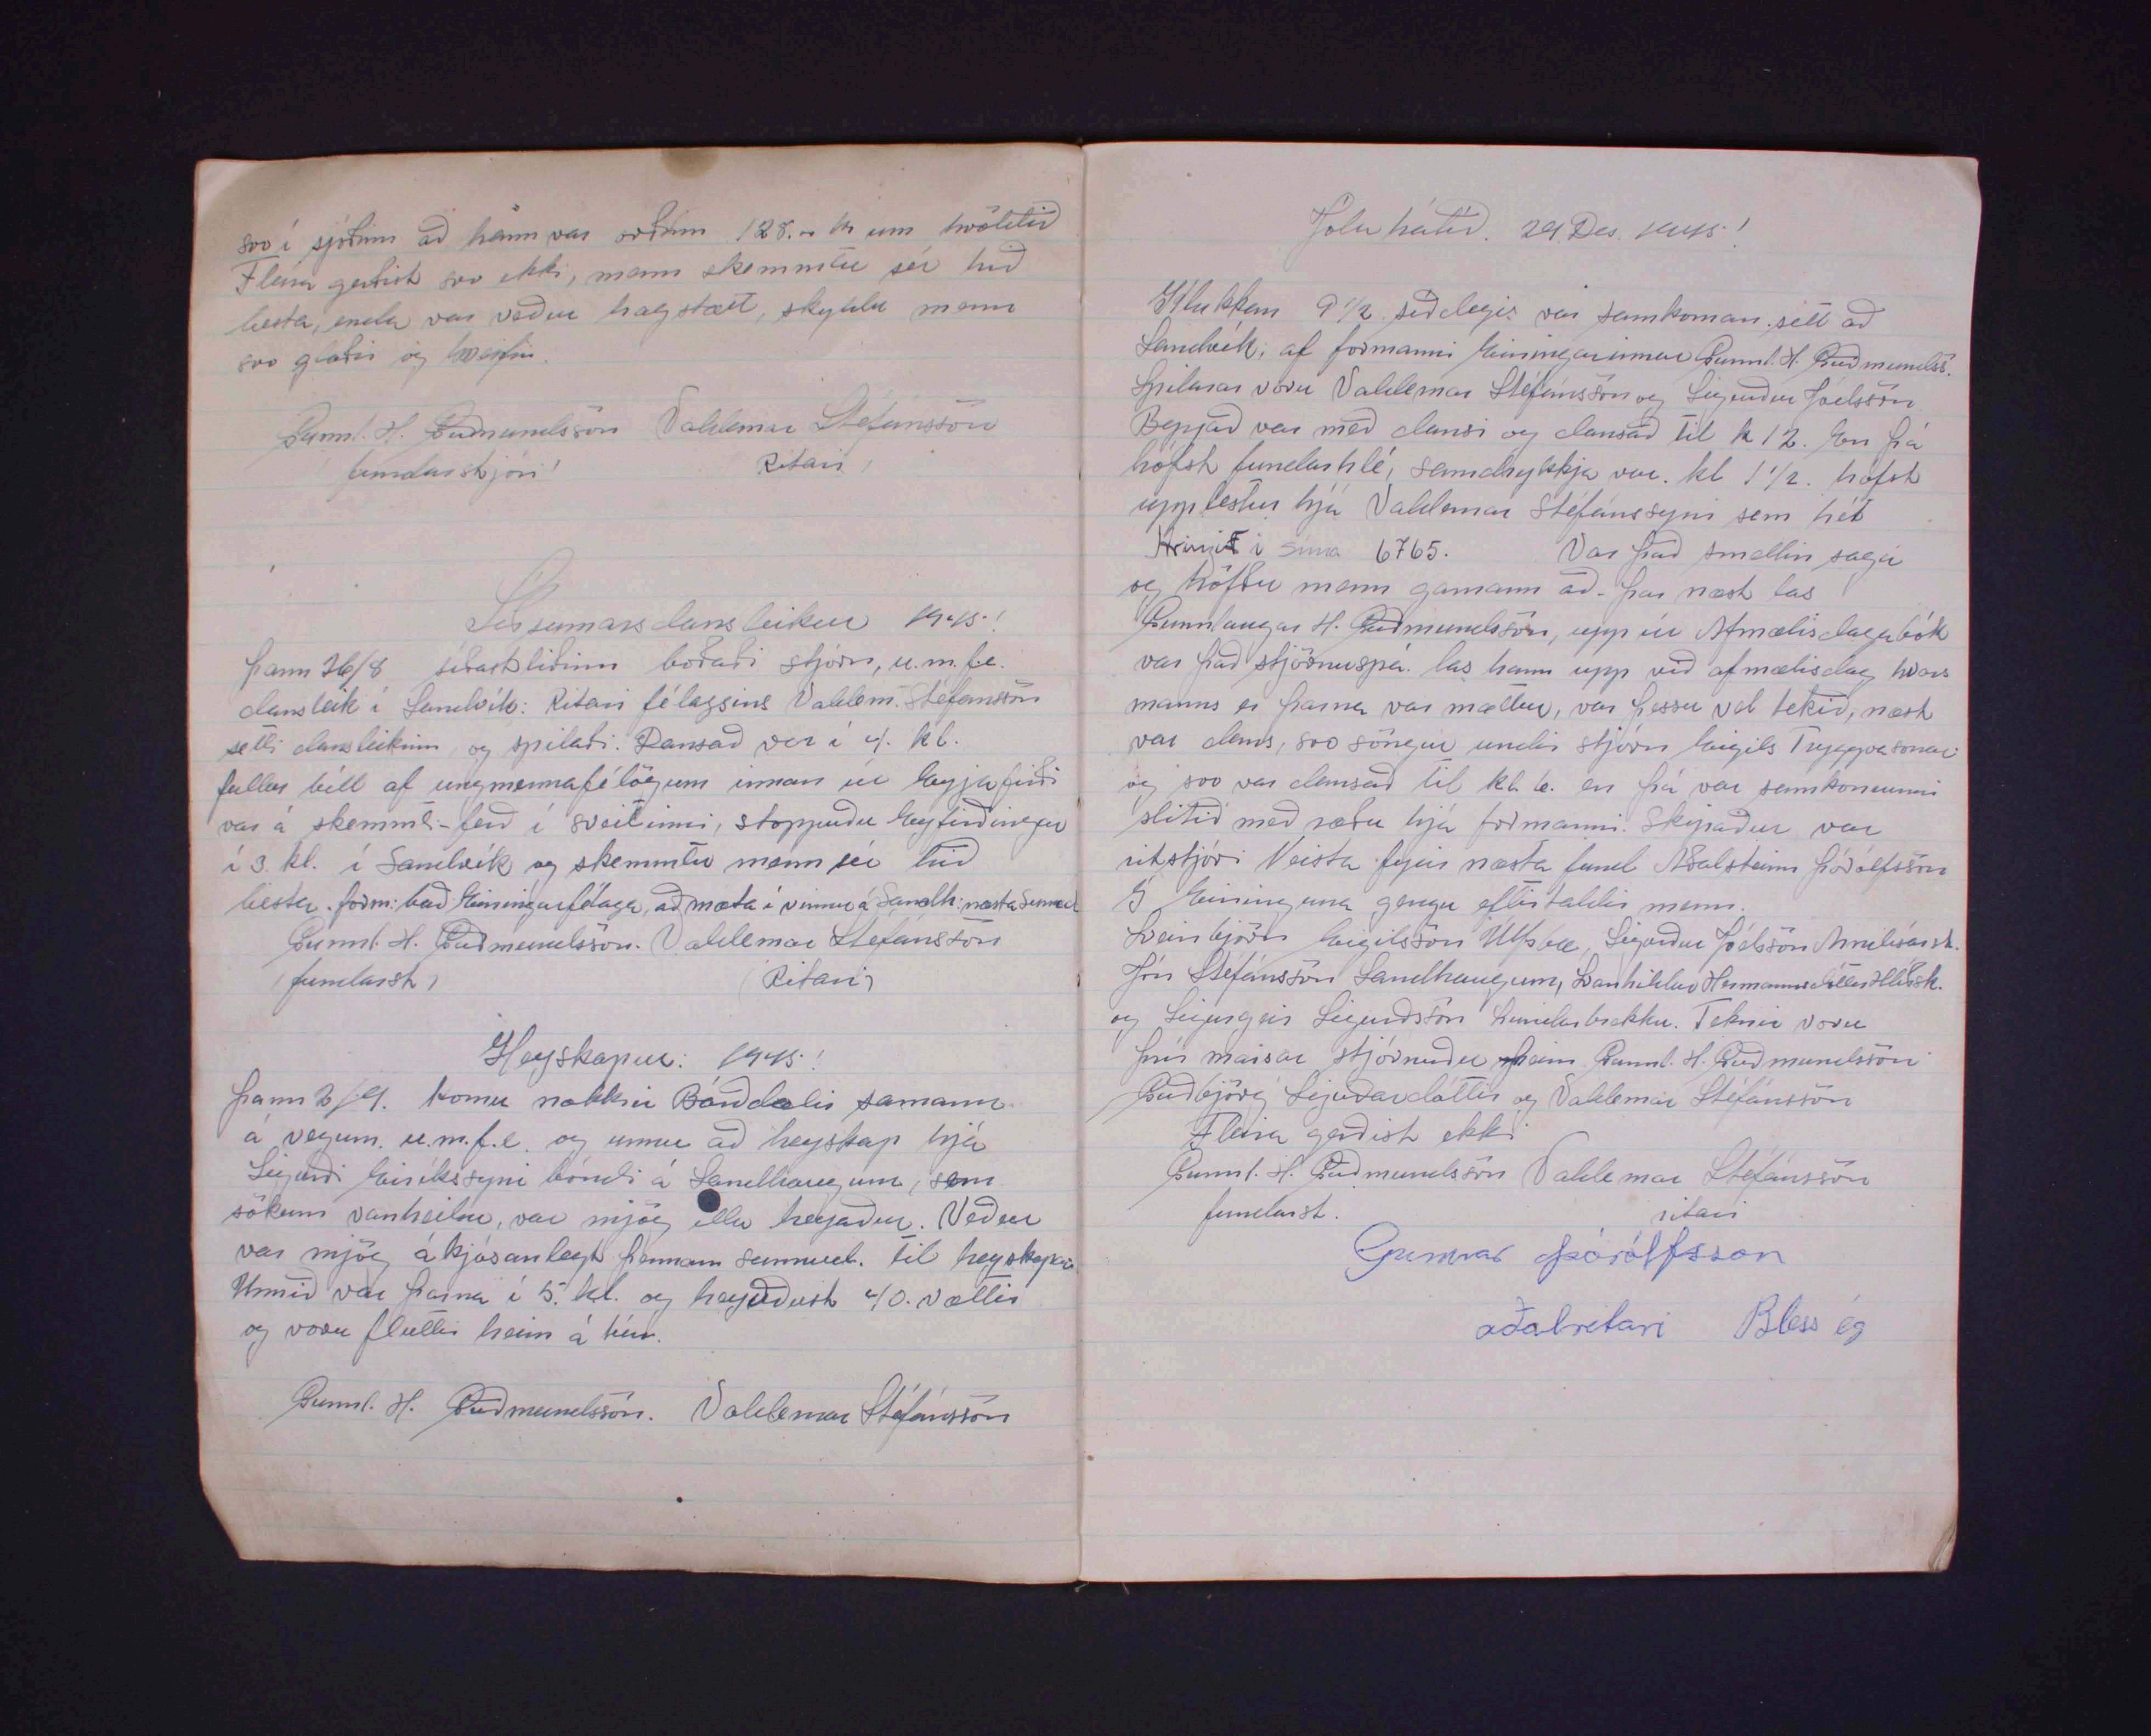 svo í sjóðinn að hann var orðinn 128.- kr um kvöldið
Fleira gerðist svo ekki, menn skemmtu sér hið
besta, enda var veður hagstætt, skyldu menn
svo glaðir og hreifir.
Gunnl. H. Guðmundssön Valdemar Stéfánssön
fundarstjóri! Ritari!
Síðsumarsdansleikur 1945.!
Þann 26/8 síðastliðinn boðaði stjórn, u.m.f.e.
dansleik í Sandvík: Ritari félagsins Valdem. Stéfánssön
setti dansleikinn og spilaði. Dansað var í 4. kl.
fullur bíll af ungmennafélögum innan úr Eyjafirði
var á skemmti-ferð í sveitinni, stoppuðu Eyfirðingar
í 3. kl. í Sandvík og skemmtu menn sér hið
besta. form: bað Einingarfélaga, að mæta í vinnu á Sandh: næsta sunnud
Gunnl. H. Guðmundssön. Valdemar Stéfánssön
(fundarst) (Ritari)
Heyskapur: 1945.!
Þann 2/9. komu nokkrir Bárðdælir samann
á vegum u.m.f.e. og unnu að heyskap hjá
Sigurði Eiríkssyni bóndi á Sandhaugum, sem
sökum vanheilsu, var mjög illa heyjaður. Veður
var mjög ákjósanlegt þennann sunnud. til heyskapar
Unnið var þarna í 5. kl. og heyjuðust 40. vættir
og voru fluttir heim á tún.
Gunnl. H. Guðmundssön. Valdemar Stéfánssön
Jóla hátíð. 29. Des. 1945.!
Klukkan 9 1/2 siðdegis var samkoman sett að
Sandvík; af formanni Einingarinnar Gunnl. H. Guðmundss.
Spilarar voru Valdemar Stéfánssön og Sigurður Jóelssön
Byrjað var með dansi og dansað til k 12. En þá
hófst fundarhlé, samdrykkja var. kl 1 1/2. hófst
upplestur hjá Valdemar Stéfánssyni sem hét
Hringið í síma 6765. Var það smellin saga
og höfðu menn gamann að. Þar næst las
Gunnlaugur H. Guðmundssön, upp úr Afmælisdagabók
var það stjörnuspá. las hann upp við afmælisdag hvers
manns er þarna var mættur, var þessu vel tekið, næst
var dans, svo söngur undir stjórn Eigils Tryggvasonar
og svo var dansað til kl. 6. en þá var samkomunni
slitið með ræðu hjá formanni. Skipaður var
ritstjóri Neista fyrir næsta fund Aðalsteinn Þórólfssön
Í Eininguna gengu eftirtaldir menn.
Sveinbjörn Eigilssön Úlfsbæ, Sigurður Jóelssön
Jón Stéfánssön Sandhaugum, Svanhildur Hermannsdóttir Hlíðsk.
og Sigurgeir Sigurðssön Lundarbrekku. Teknir voru
þrír marsar stjórnuðu þeim Gunnl. H. Guðmundssön
Guðbjörg Sigurðardóttir og Valdemar Stéfánssön
Fleira gerðist ekki
Gunnl. H. Guðmundssön Valdemar Stéfánssön
fundarst. ritari
Gunnar Þórólfsson
aðalritari Bless ég